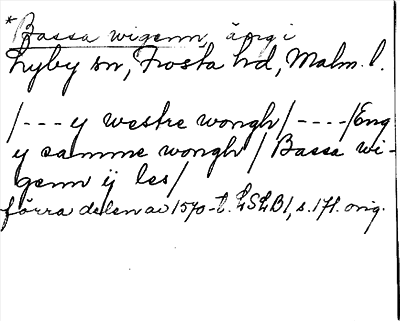 *Bassa wigenn, äng i
Lyby sn, Frosta hd, Malm. l.
/---y westre wongh/----/Eng
y samme wongh/Bassa wi-
genn ÿ les/
förra delen av 1570-t. LSLB1, s. 171. orig.